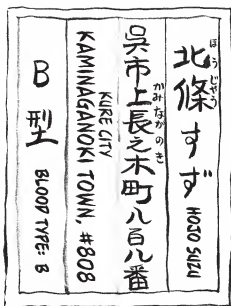 北條すず
ほうじょう
HOJO SUZU
呉市上長之木町八百八番
かみながのき
KURE CITY
KAMINAGANOKI TOWN, #808
B型
BLOOD TYPE: B